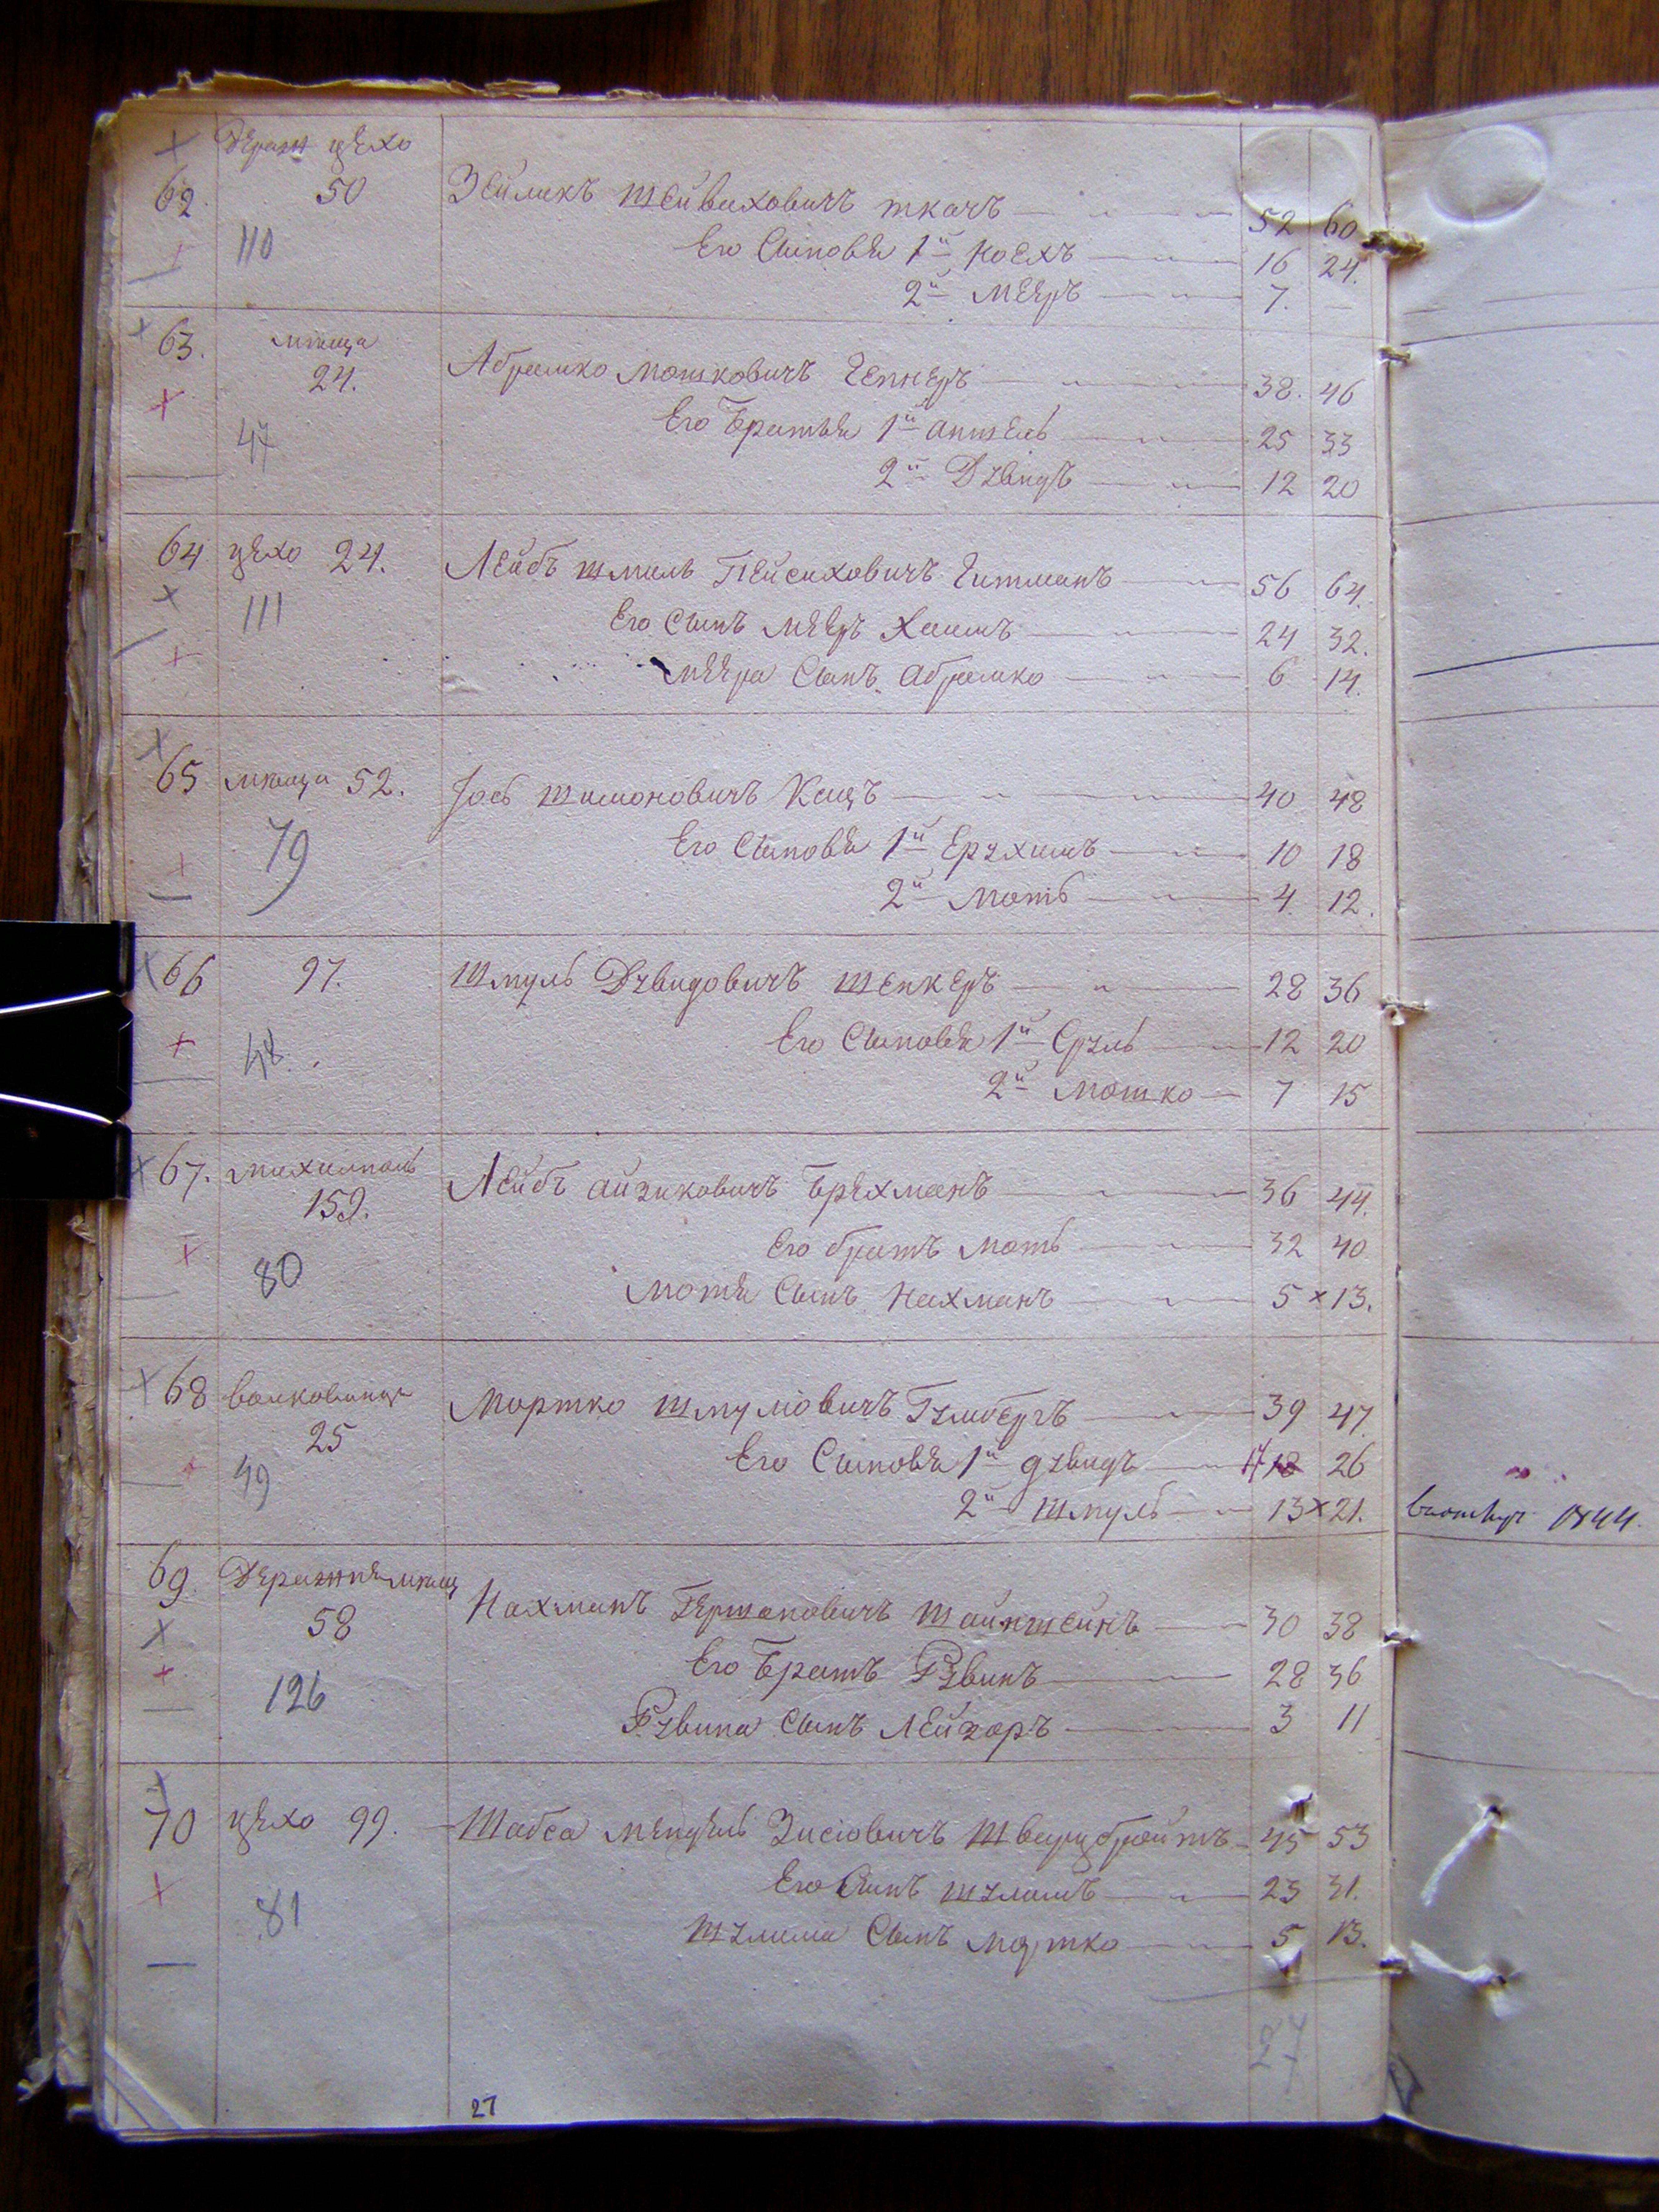 Дераж цехо
62 50 Зейликъ Шейваховичъ ткачъ 52 60
110 Его Сыновья 1й Ноехъ 16 24.
2й Мееръ 7. —
63. мѣща
24. Абрамко Мошковичъ Гепнеръ 38. 46
47 Его Братья 1й Аншель 25 33
2й Дувидъ 12 20
64 цехо 24. Лейбъ Шмиль Пейсиховичъ Гитманъ 56 64.
111 Его Сынъ Мееръ Хаимъ 24 32.
Меера Сынъ Абрамко 6 14.
65 мѣща 52. Іось Шимоновичъ Кацъ 40 48
79 Его Сыновья 1й Ерухимъ 10 18
2й Моть 4 12.
66 97. Шмуль Дувидовичъ Шенкеръ 28 36
48. Его Сыновья 1й Сруль 12 20
2й Мошко 7 15
67. михалполь
159. Лейбъ Айзиковичъ Брехманъ 36 44.
Его братъ Моть 32 40
80 Мотя Сынъ Нахманъ 5 x 13.
68 волковинце
25 Мортко Шмуловичъ Гимбергъ 39 47
49 Его Сыновья 1й Дувидъ 17 18 26
2й Шмуль 13 x 21. 1844
69. Деражня мѣщ
58 Нахманъ Гершоновичъ Шайнштейнъ 30 38
Его Братъ Рувинъ 28 36
126 Рувина Сынъ Лейзоръ 3 11
70 цехо 99. Шабса Мендель Зисіовичъ Шварцбройтъ 45 53
Его Сынъ Шулимъ 23 31.
81 Шулима Сынъ Мортко 5 13.
27